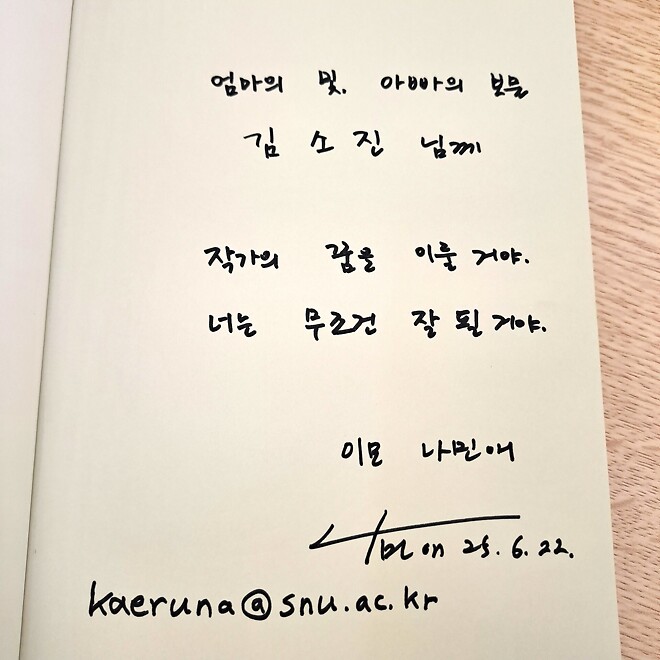 엄마의 빛. 아빠의 보물
김 소 진 님께
작가의 꿈을 이룰 거야.
너는 무조건 잘 될 거야.
이모 나민애
나민애 25. 6. 22.
kaeruna@snu.ac.kr